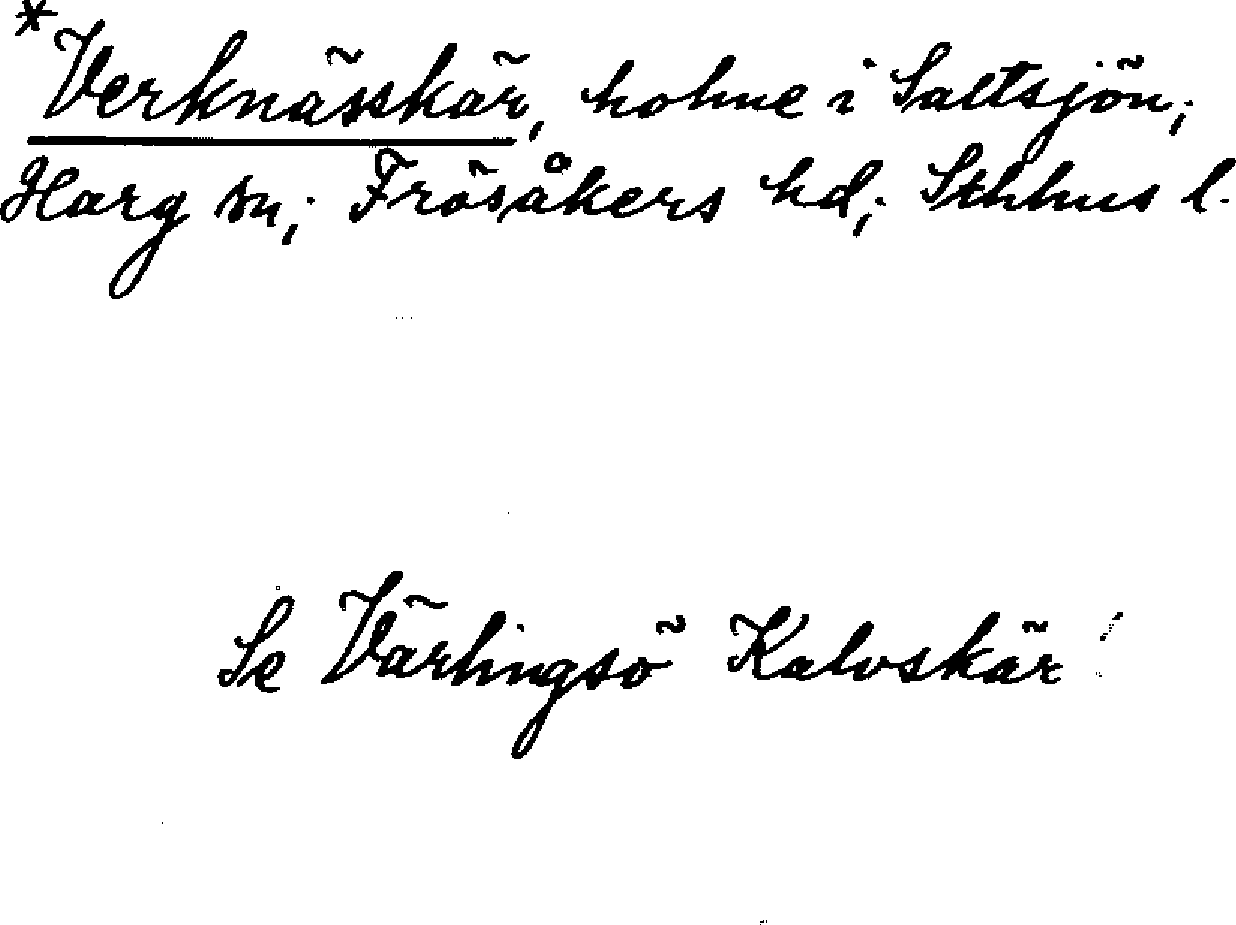 *Verknässkär, holme i Saltsjön;
Harg sn; Frösåkers hd; Sthlms l.
Se Värlingsö Kalvskär!